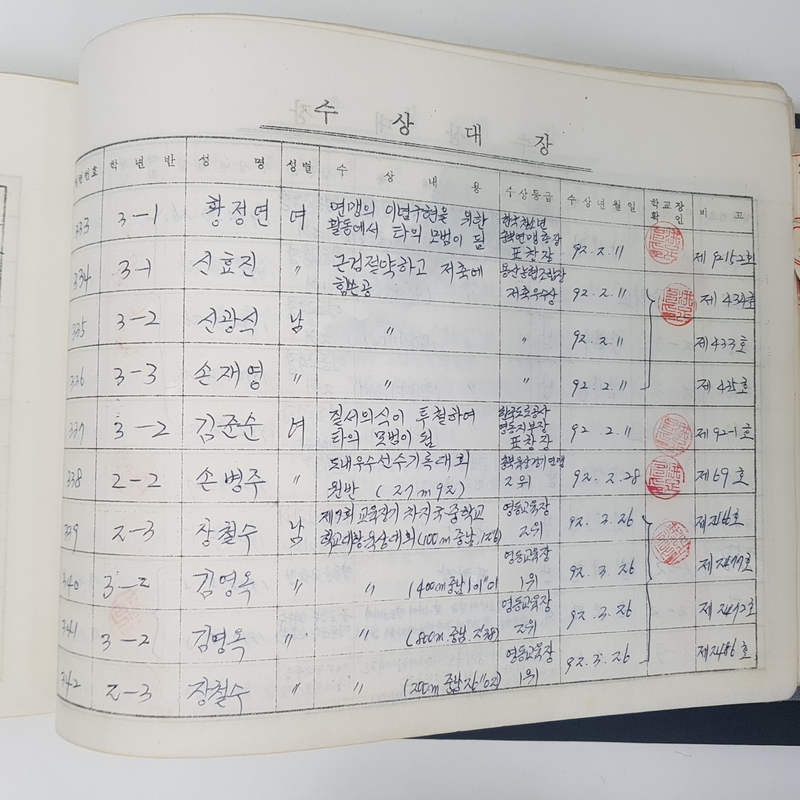 수 상 대 장
학 년 반 성 명 성별 수 상 내 용 수상등급 수상년월일 학교장 확인 비 고
333 3-1 황정연 여 연맹의 이념구현을 위한 활동에서 타의 모범이 됨 한국청소년 충북연맹총장 표창장 92. 2. 11 제9215-2호
334 3-1 신효진 〃 근검절약하고 저축에 힘쓴공 저축우수상 92. 2. 11 제 434호
335 3-2 신광석 남 〃 〃 92. 2. 11 제 433호
336 3-3 손재영 〃 〃 〃 92. 2. 11 제 435호
337 3-2 김준순 여 질서의식이 투철하여 타의 모범이 됨 한국도로공사 영동지부장 표창장 92. 2. 11 제92-1호
338 2-2 손병주 〃 도내우수선수기록대회 원반 (27m92) 충북육상경기연맹 2위 92. 2. 28 제69호
339 2-3 장철수 남 제7회 교육장기 차지 국·중학교 (100m 중남 영동교육장 2위 92. 3. 26
340 3-2 김영옥 〃 〃 (400m 중남 영동교육장 1위 92. 3. 26
341 3-2 김영옥 〃 〃 (800m 중남 영동교육장 2위 92. 3. 26
342 2-3 장철수 〃 〃 (200m 중남 영동교육장 1위 92. 3. 26